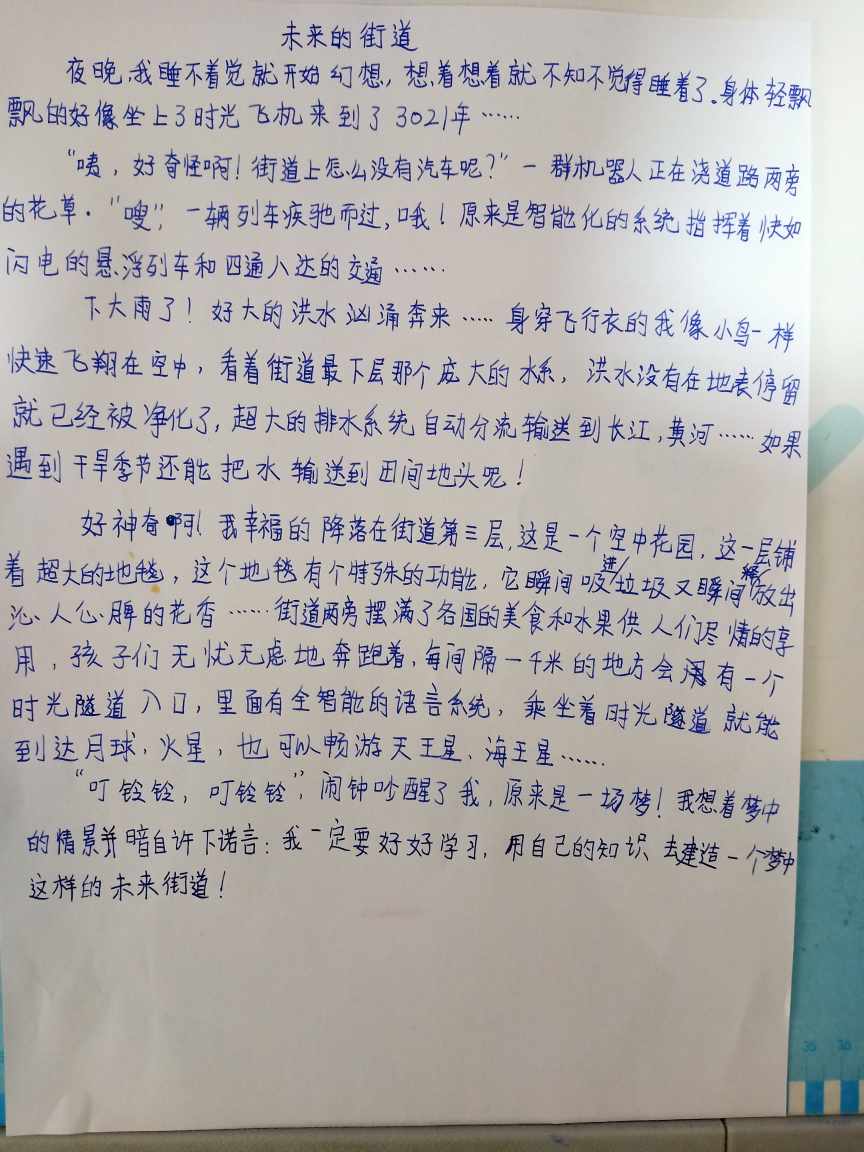 未来的街道
夜晚,我睡不着觉就开始幻想，想着想着就不知不觉得睡着了。身体轻飘
飘的好像坐上了时光飞机来到了3021年……
“咦，好奇怪啊！街道上怎么没有汽车呢？”一群机器人正在浇道路两旁
的花草。“嗖”，一辆列车疾驰而过,哦！原来是智能化的系统指挥着快如
闪电的悬浮列车和四通八达的交通……
下大雨了！好大的洪水汹涌奔来……身穿飞行衣的我像小鸟一样
快速飞翔在空中，看着街道最下层那个庞大的水系，洪水没有在地表停留
就已经被净化了,超大的排水系统自动分流输送到长江,黄河……如果
遇到干旱季节还能把水输送到田间地头呢！
好神奇啊！我幸福的降落在街道第三层,这是一个空中花园，这一层铺
着超大的地毯，这个地毯有个特殊的功能，它瞬间吸进垃圾又瞬间释放出
沁人心脾的花香……街道两旁摆满了各国的美食和水果供人们尽情的享
用，孩子们无忧无虑地奔跑着,每间隔一千米的地方会有一个
时光隧道入口，里面有全智能的语言系统，乘坐着时光隧道就能
到达月球、火星，也可以畅游天王星、海王星……
“叮铃铃，叮铃铃”，闹钟吵醒了我,原来是一场梦！我想着梦中
的情景并暗自许下诺言：我一定要好好学习，用自己的知识去建造一个梦中
这样的未来街道！
35 36